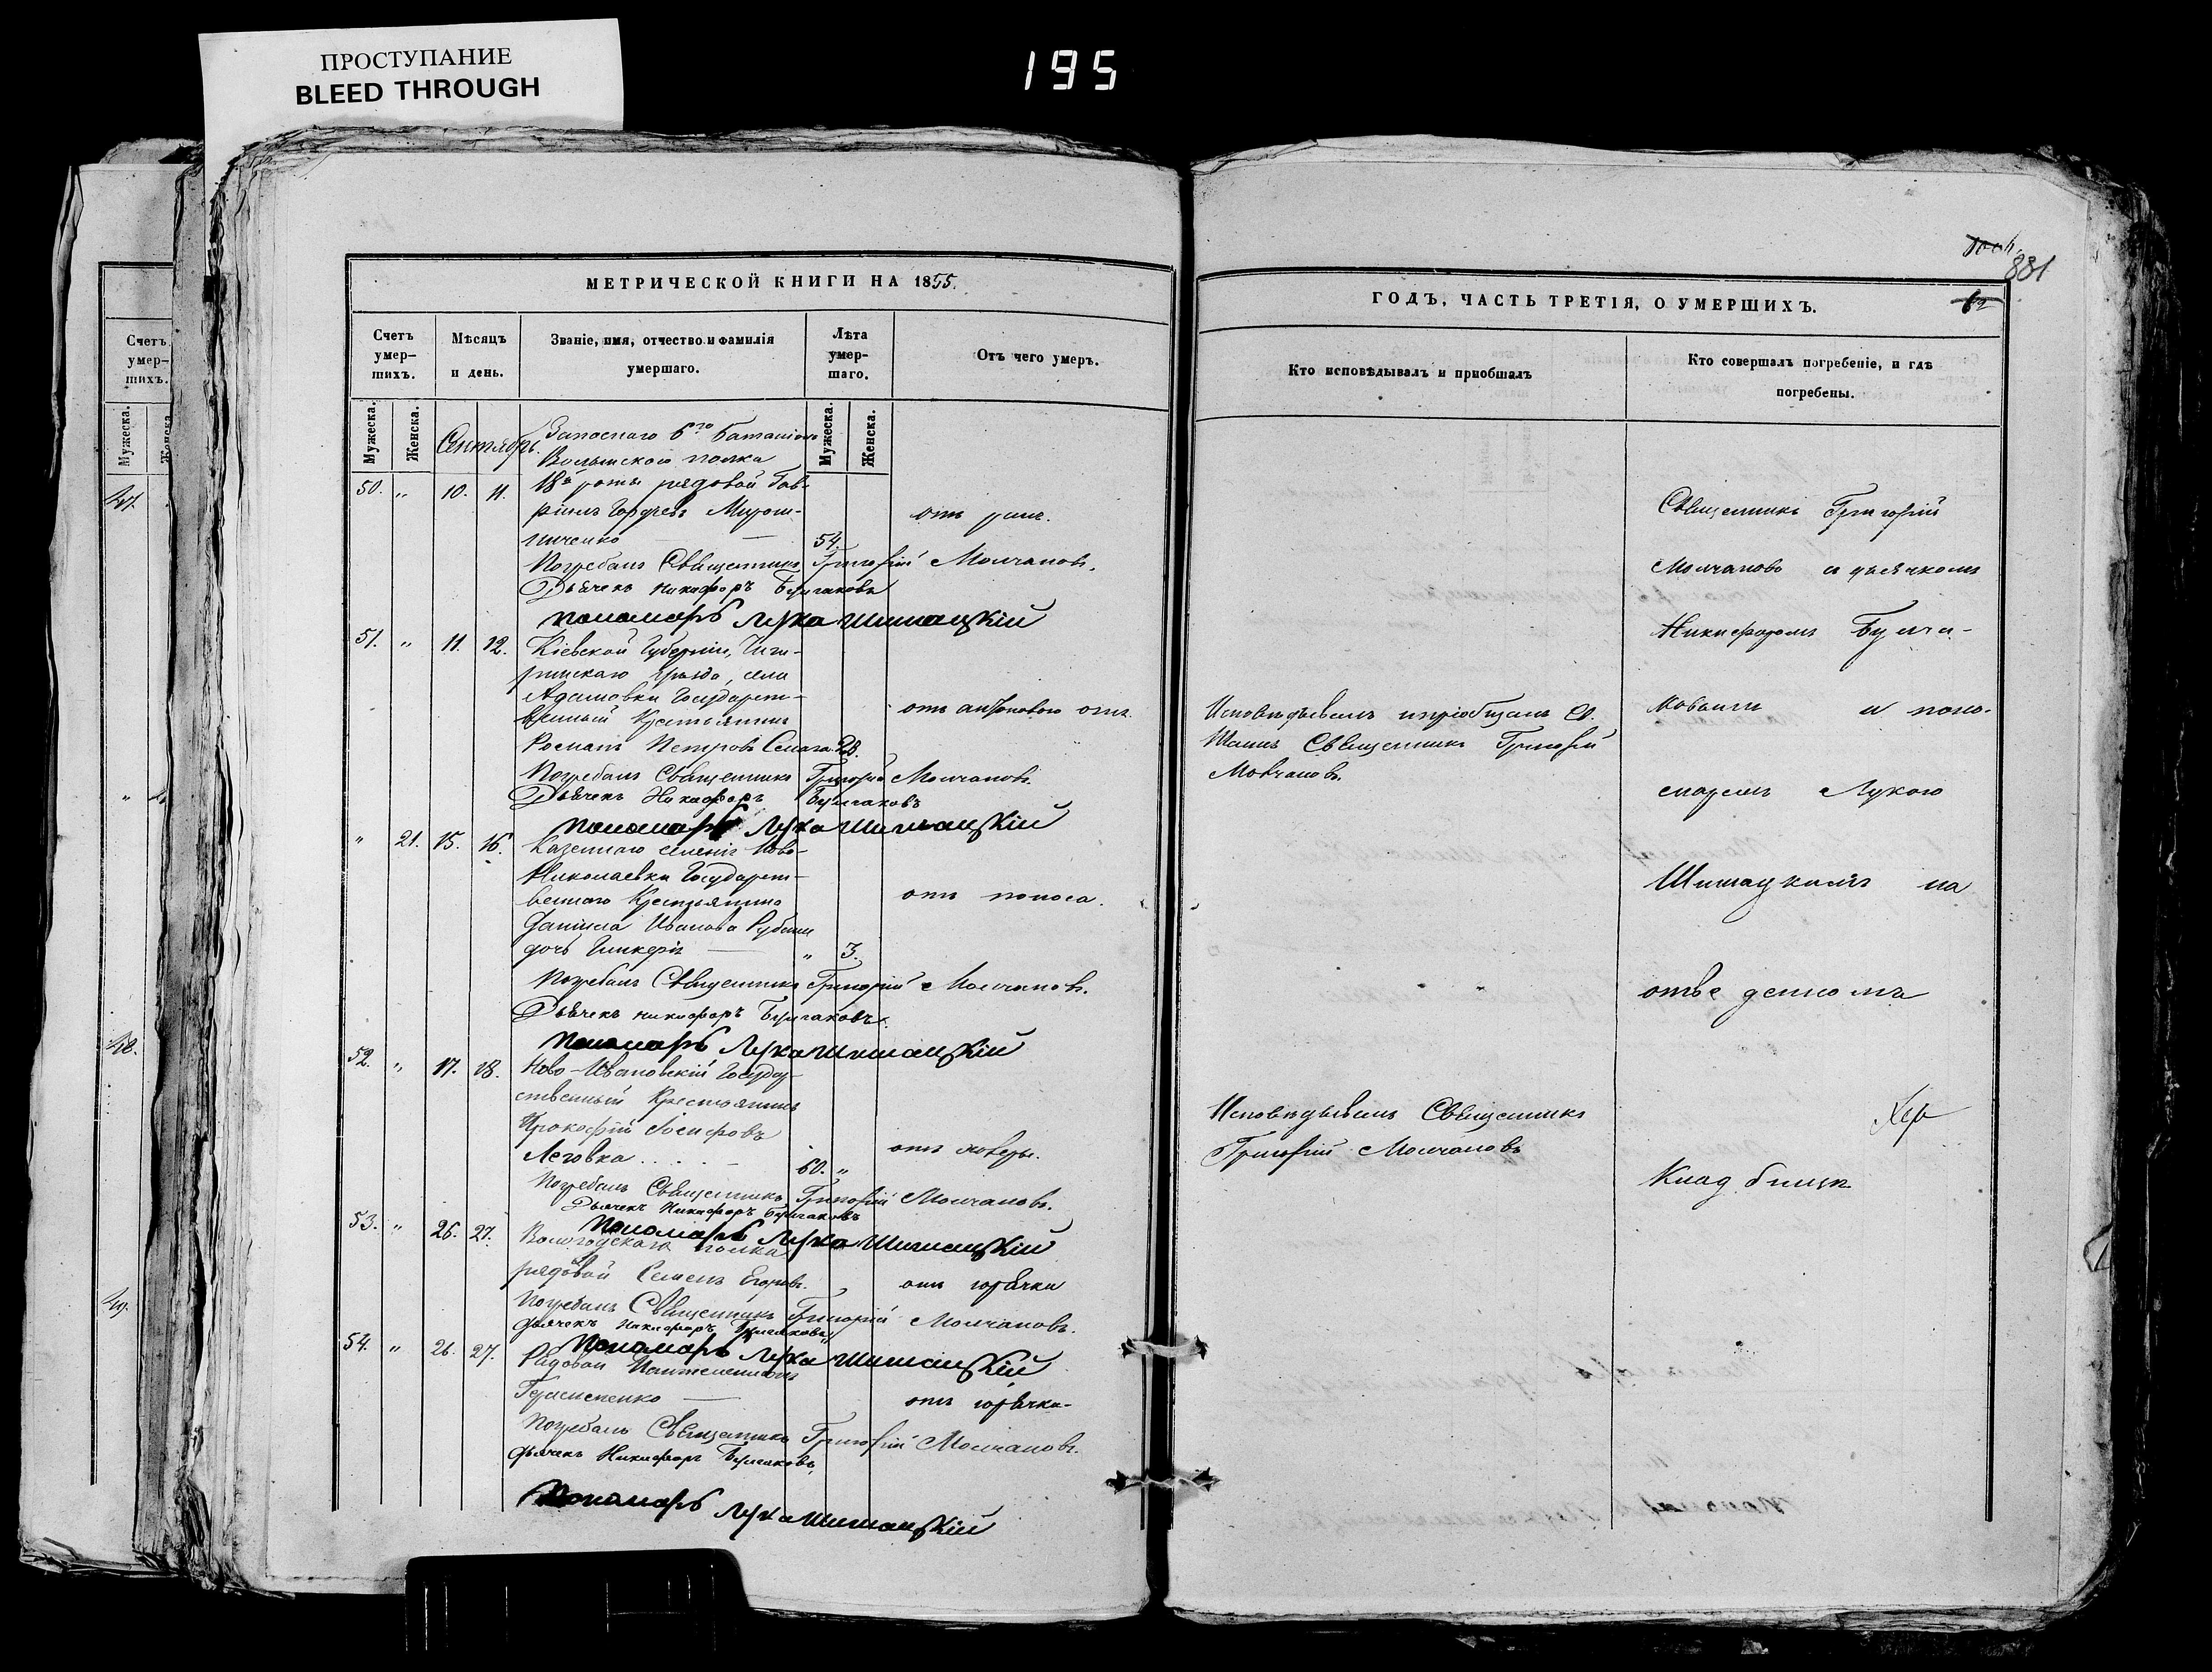 ПРОСТУПАНИЕ
BLEED THROUGH
195
Счетъ
умер-
шихъ.
Мужеска.
Женска.
47.
48.
49.
МЕТРИЧЕСКОЙ КНИГИ НА 1855.
Счетъ
умер-
шихъ.
Мѣсяцъ
и день.
Званіе, имя, отчество и фамилія
умершаго.
Лѣта
умер-
шаго.
Отъ чего умеръ.
Мужеска.
Женска.
Сентябрь.
Мужеска.
Женска.
Запаснаго 6го Баталіона
Волынскаго полка
50. „ 10. 11. 18й роты рядовой Гав-
ріилъ Гордѣевъ Мирош-
ниченко — 54. отъ ранъ.
Погребалъ Священникъ Григорій Молчановъ.
Дьячекъ Никифоръ Булгаковъ
Пономарь Лука Шишацкій
51. „ 11. 12. Кіевской Губерніи, Чиги-
ринскаго уѣзда, села
Адамовки Государст-
венный Крестьянинъ отъ антонового огня.
Романъ Петровъ 28.
Погребалъ Священникъ Григорій Молчановъ.
Дьячекъ Никифоръ Булгаковъ
Пономарь Лука Шишацкій
„ 21. 15. 16. Казеннаго селенія Ново-
Николаевки Государст-
веннаго Крестьянина отъ поноса.
Даніила Иванова
дочь Гликерія — „ 3.
Погребалъ Священникъ Григорій Молчановъ.
Дьячекъ Никифоръ Булгаковъ.
Пономарь Лука Шишацкій
52. „ 17. 18. Ново-Ивановскій Государ-
ственный Крестьянинъ
Прокофій Іосифовъ
60. „
Погребалъ Священникъ Григорій Молчановъ.
Дьячекъ Никифоръ Булгаковъ
Пономарь Лука Шишацкій
53. „ 26. 27. Вологодскаго полка
рядовой Семенъ Егоровъ. отъ горячки
Погребалъ Священникъ Григорій Молчановъ.
Дьячекъ Никифоръ Булгаковъ
Пономарь Лука Шишацкій
54. „ 26. 27. Рядовой Пантелеимонъ
Герасименко — отъ горячки
Погребалъ Священникъ Григорій Молчановъ.
Дьячекъ Никифоръ Булгаковъ
Пономарь Лука Шишацкій
881
62
ГОДЪ, ЧАСТЬ ТРЕТІЯ, О УМЕРШИХЪ.
Кто исповѣдывалъ и пріобщалъ
Кто совершалъ погребеніе, и гдѣ
погребены.
Исповѣдывалъ и пріобщалъ Св.
Таинъ Священникъ Григорій
Молчановъ.
Исповѣдывалъ Священникъ
Григорій Молчановъ
Священникъ Григорій
Молчановъ и дьячкомъ
Никифоромъ Булга-
ковымъ и поно-
маремъ Лукою
Шишацкимъ на
отведенномъ
Кладбищѣ